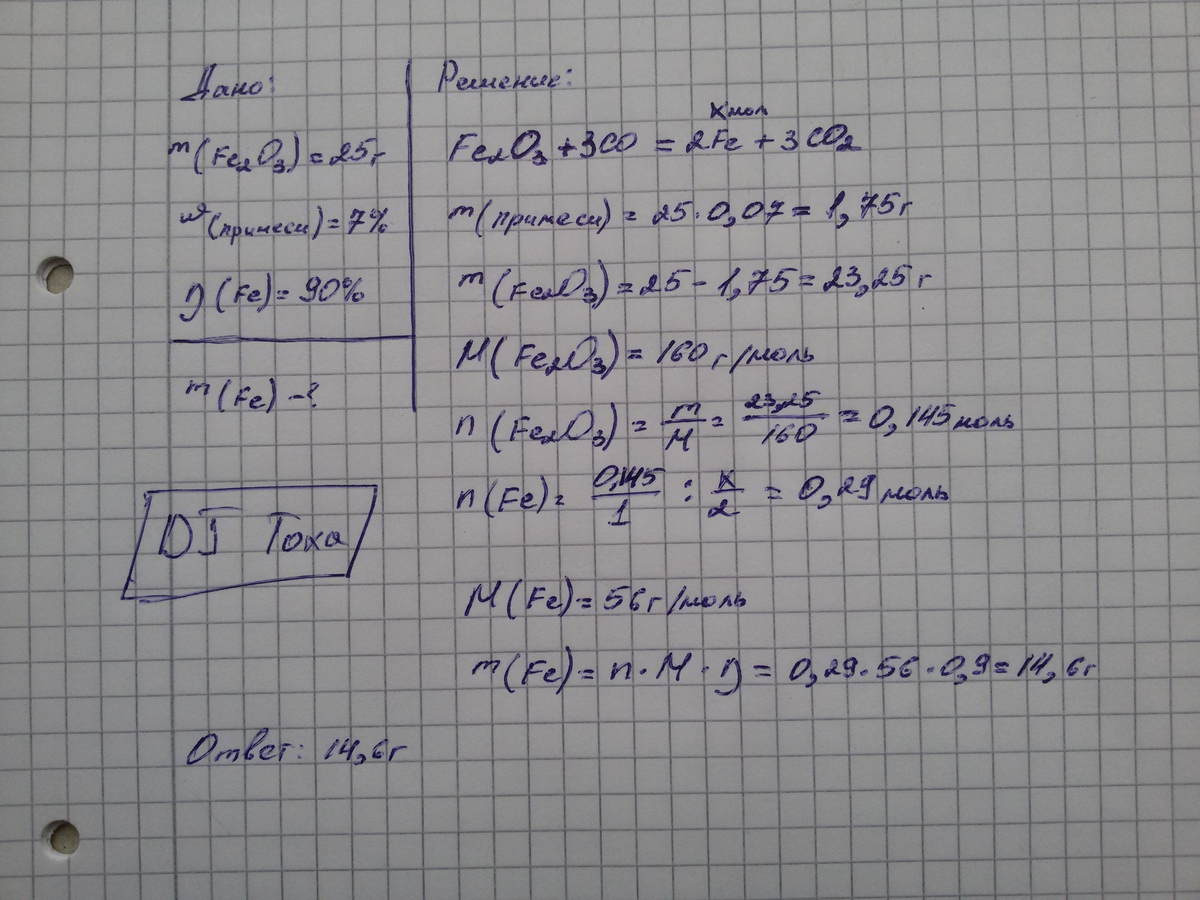 Дано:
m(Fe₂O₃) = 25г
ω(примеси) = 7%
η(Fe) = 90%
m(Fe) - ?
Решение:
x моль
Fe₂O₃ + 3CO = 2Fe + 3CO₂
m(примеси) = 25 · 0,07 = 1,75г
m(Fe₂O₃) = 25 - 1,75 = 23,25г
M(Fe₂O₃) = 160 г/моль
n(Fe₂O₃) = m/M = 23,25/160 = 0,145 моль
n(Fe) = 0,145/1 : x/2 = 0,29 моль
M(Fe) = 56 г/моль
m(Fe) = n · M · η = 0,29 · 56 · 0,9 = 14,6г
DJ Тоха
Ответ: 14,6г